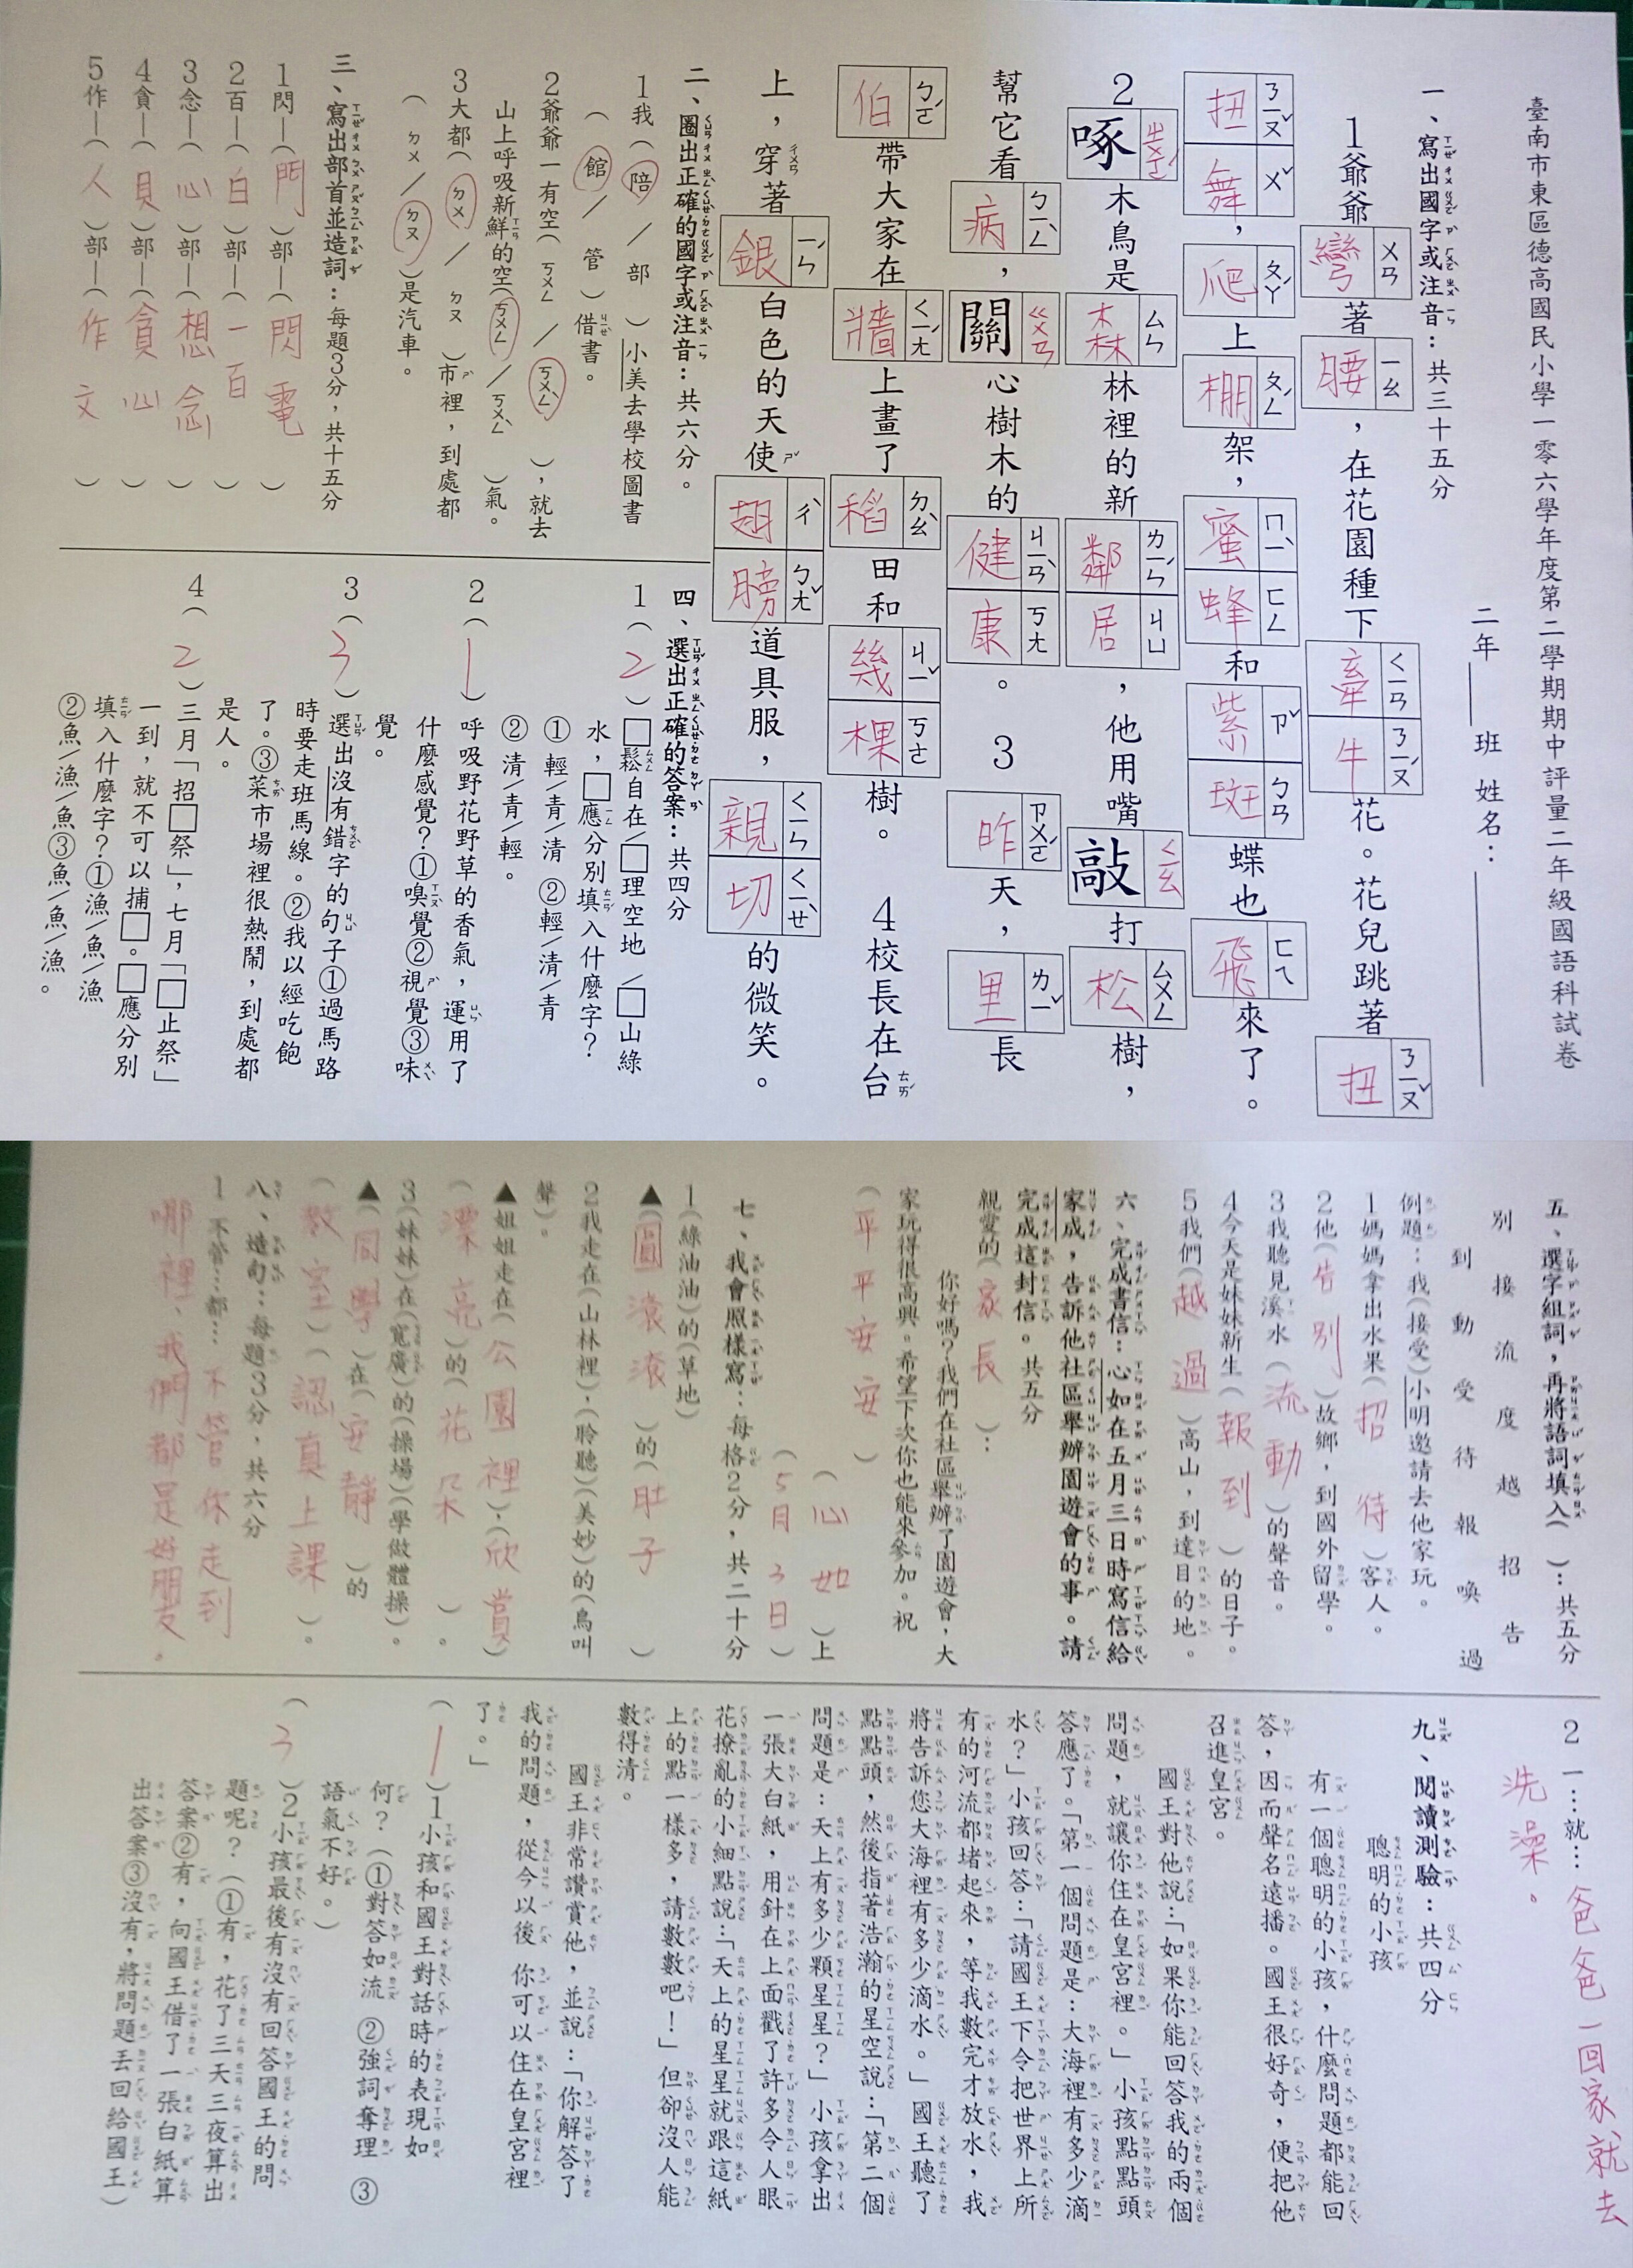 臺南市東區德高國民小學一零六學年度第二學期期中評量二年級國語科試卷
二年 班 姓名：
一、寫出國字或注音：共三十五分
1爺爺彎ㄨㄢ著腰ㄧㄠ，在花園種下牽ㄑㄧㄢ牛ㄋㄧㄡˊ花。花兒跳著扭ㄋㄧㄡˇ
扭ㄋㄧㄡˇ舞ㄨˇ，爬ㄆㄚˊ上棚ㄆㄥˊ架，蜜ㄇㄧˋ蜂ㄈㄥ和紫ㄗˇ斑ㄅㄢ蝶也飛ㄈㄟ來了。
2啄ㄓㄨㄛˊ木鳥是森ㄙㄣ林裡的新鄰ㄌㄧㄣˊ居ㄐㄩ，他用嘴敲ㄑㄧㄠ打松ㄙㄨㄥ樹，
幫它看病ㄅㄧㄥˋ，關ㄍㄨㄢ心樹木的健ㄐㄧㄢˋ康ㄎㄤ。3昨ㄗㄨㄛˊ天，里ㄌㄧˇ長
伯ㄅㄛˊ帶大家在牆ㄑㄧㄤˊ上畫了稻ㄉㄠˋ田和幾ㄐㄧˇ棵ㄎㄜ樹。 4校長在台ㄊㄞˊ
上，穿ㄔㄨㄢ著銀ㄧㄣˊ白色的天使ㄕˇ翅ㄔˋ膀ㄅㄤˇ道具服，親ㄑㄧㄣ切ㄑㄧㄝˋ的微笑。
二、圈出正確的國字或注音：共六分。
1我（陪／部）小美去學校圖書
（館／管）借書。
2爺爺一有空（ㄎㄨㄥ／ㄎㄨㄥˋ），就去
山上呼吸新鮮的空（ㄎㄨㄥ／ㄎㄨㄥˋ）氣。
3大都（ㄉㄨ／ㄉㄡ）市裡，到處都
（ㄉㄨ／ㄉㄡ）是汽車。
三、寫出部首並造詞：每題3分，共十五分
1閃—（門）部—（閃電）
2百—（白）部—（一百）
3念—（心）部—（想念）
4貪—（貝）部—（貪心）
5作—（人）部—（作文）
四、選出正確的答案：共四分
1（2）□鬆自在／□理空地／□山綠
水，□應分別填入什麼字？
①輕/青/清 ②輕/清/青
②清/青/輕。
2（1）呼吸野花野草的香氣，運用了
什麼感覺？①嗅覺②視覺③味
覺。
3（3）選出沒有錯字的句子①過馬路
時要走班馬線。②我以經吃飽
了。③菜市場裡很熱鬧，到處都
是人。
4（2）三月「招□祭」，七月「□止祭」
一到，就不可以捕□。□應分別
填入什麼字？①漁/魚/漁
②魚/漁/魚③魚/魚/漁。
五、選字組詞，再將語詞填入（ ）：共五分
別 接 流 度 越 招 告
到 動 受 待 報 喚 過
例題：我（接受）小明邀請去他家玩。
1媽媽拿出水果（招待）客人。
2他（告別）故鄉，到國外留學。
3我聽見溪水（流動）的聲音。
4今天是妹妹新生（報到）的日子。
5我們（越過）高山，到達目的地。
六、完成書信：心如在五月三日時寫信給
家成，告訴他社區舉辦園遊會的事。請
完成這封信。共五分
親愛的（家長）：
你好嗎？我們在社區舉辦了園遊會，大
家玩得很高興。希望下次你也能來參加。祝
（平平安安）
（心如）上
（5月3日）
七、我會照樣寫：每格2分，共二十分
1（綠油油）的（草地）
▲（圓滾滾）的（肚子）
2我走在（山林裡），（聆聽）（美妙）的（鳥叫
聲）。
▲姐姐走在（公園裡），（欣賞）
（漂亮）的（花朵）。
3（妹妹）在（寬廣）的（操場）（學做體操）。
▲（同學）在（安靜）的
（教室）（認真上課）。
八、造句：每題3分，共六分
1 不管…都… 不管你走到
哪裡、我們都是好朋友。
2 一…就… 爸爸一回家就去
洗澡。
九、閱讀測驗：共四分
聰明的小孩
有一個聰明的小孩，什麼問題都能回
答，因而聲名遠播。國王很好奇，便把他
召進皇宮。
國王對他說：「如果你能回答我的兩個
問題，就讓你住在皇宮裡。」小孩點點頭
答應了。「第一個問題是：大海裡有多少滴
水？」小孩回答：「請國王下令把世界上所
有的河流都堵起來，等我數完才放水，我
將告訴您大海裡有多少滴水。」國王聽了
點點頭，然後指著浩瀚的星空說：「第二個
問題是：天上有多少顆星星？」小孩拿出
一張大白紙，用針在上面戳了許多令人眼
花撩亂的小細點說：「天上的星星就跟這紙
上的點一樣多，請數數吧！」但卻沒人能
數得清。
國王非常讚賞他，並說：「你解答了
我的問題，從今以後 你可以住在皇宮裡
了。」
（1）1小孩和國王對話時的表現如
何？（①對答如流 ②強詞奪理 ③
語氣不好。）
（3）2小孩最後有沒有回答國王的問
題呢？（①有，花了三天三夜算出
答案②有，向國王借了一張白紙算
出答案③沒有，將問題丟回給國王）